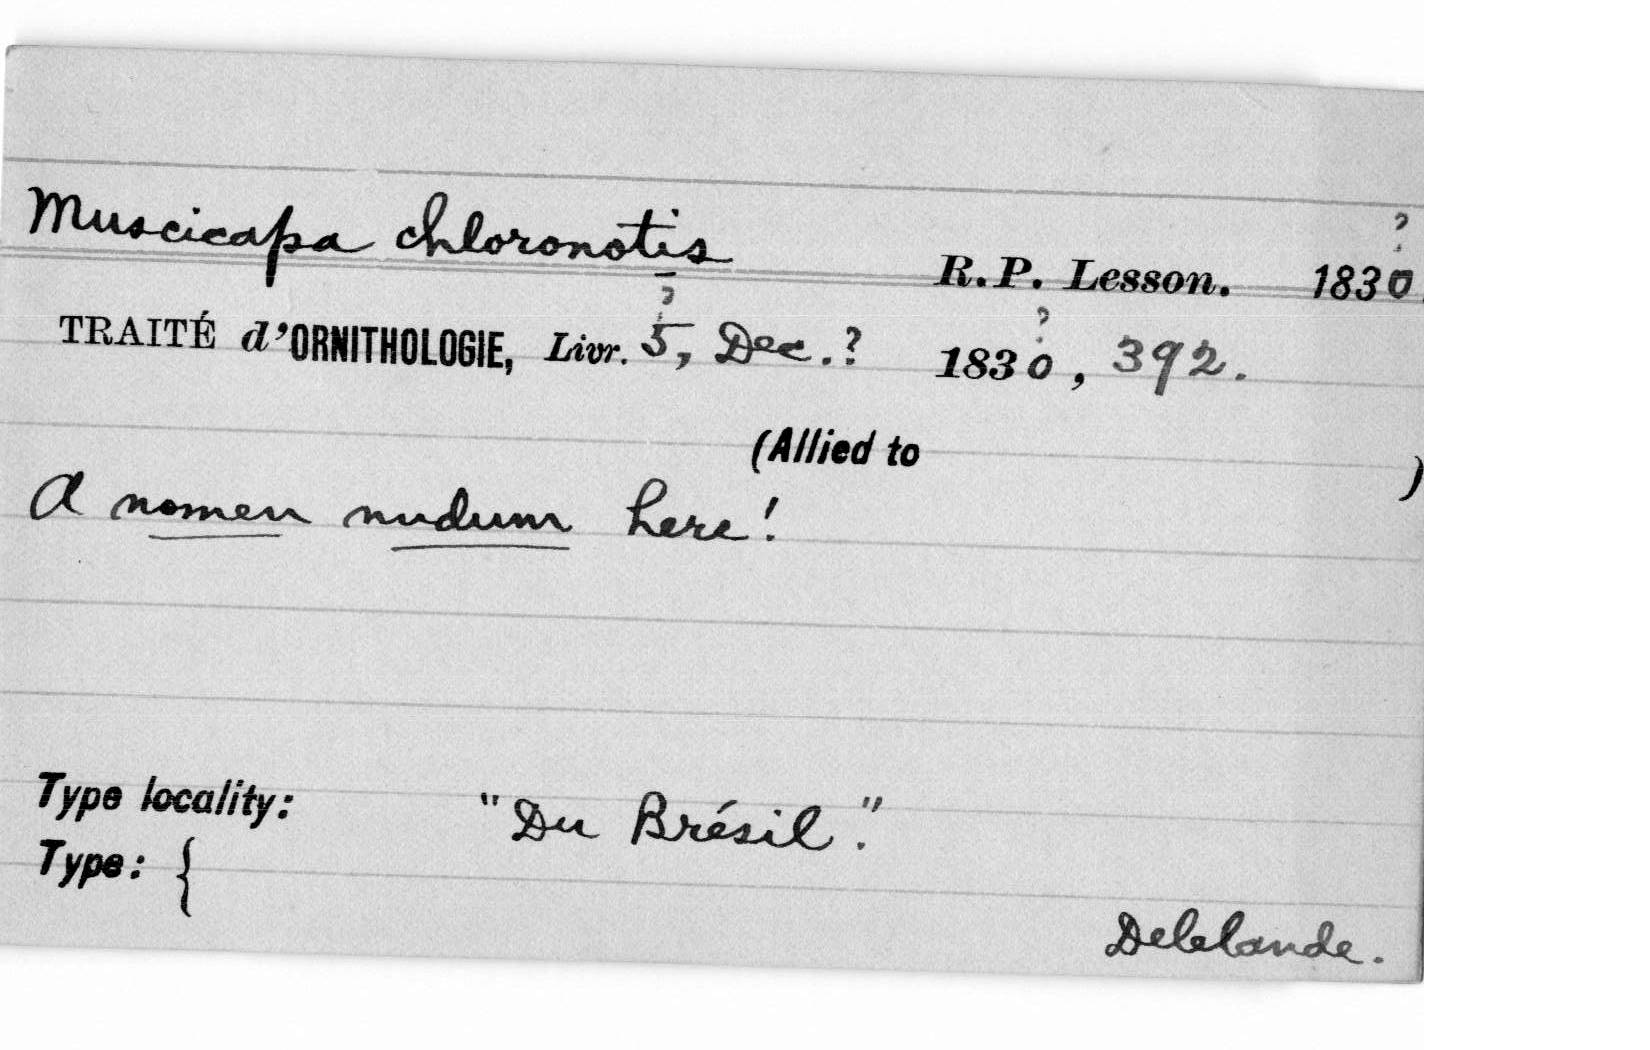 Muscicapa chloronotis
R.P. Lesson. 1830?
TRAITÉ d'ORNITHOLOGIE, Livr. 5?, Dec.? 1830?, 392.
(Allied to )
A nomen nudum here!
Type locality: "Du Brésil."
Type: {
Delelande.